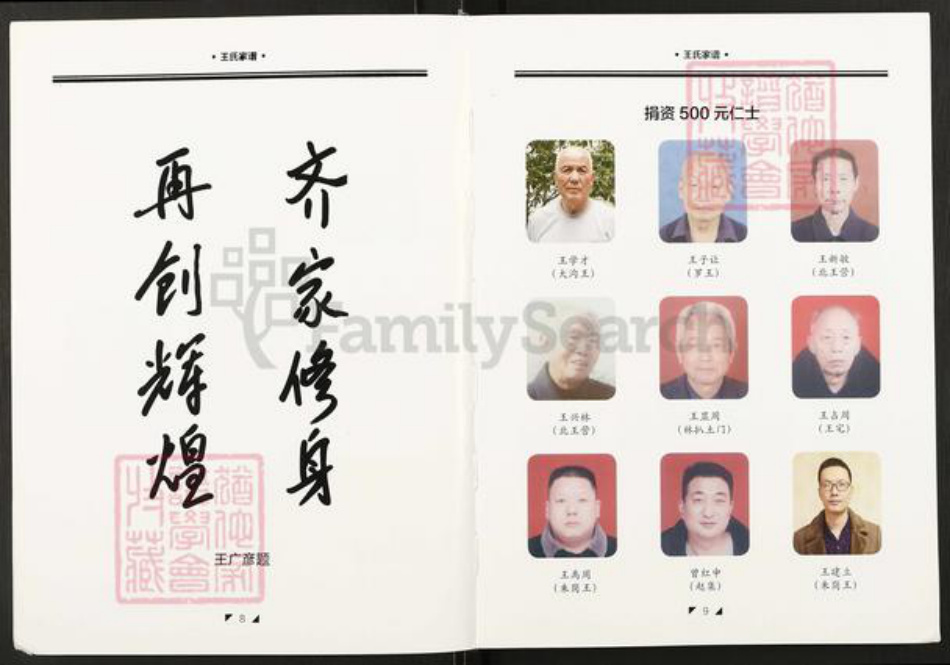 • 王氏家谱 •
齐家修身
再创辉煌
王广彦题
8
• 王氏家谱 •
捐资 500 元仁士
王学才
（大沟王）
王子让
（罗王）
王新敏
（北王营）
王兴林
（北王营）
王显周
（林扒土门）
王占周
（王宅）
王禹周
（朱岗王）
曾红申
（赵集）
王建立
（朱岗王）
9
FamilySearch